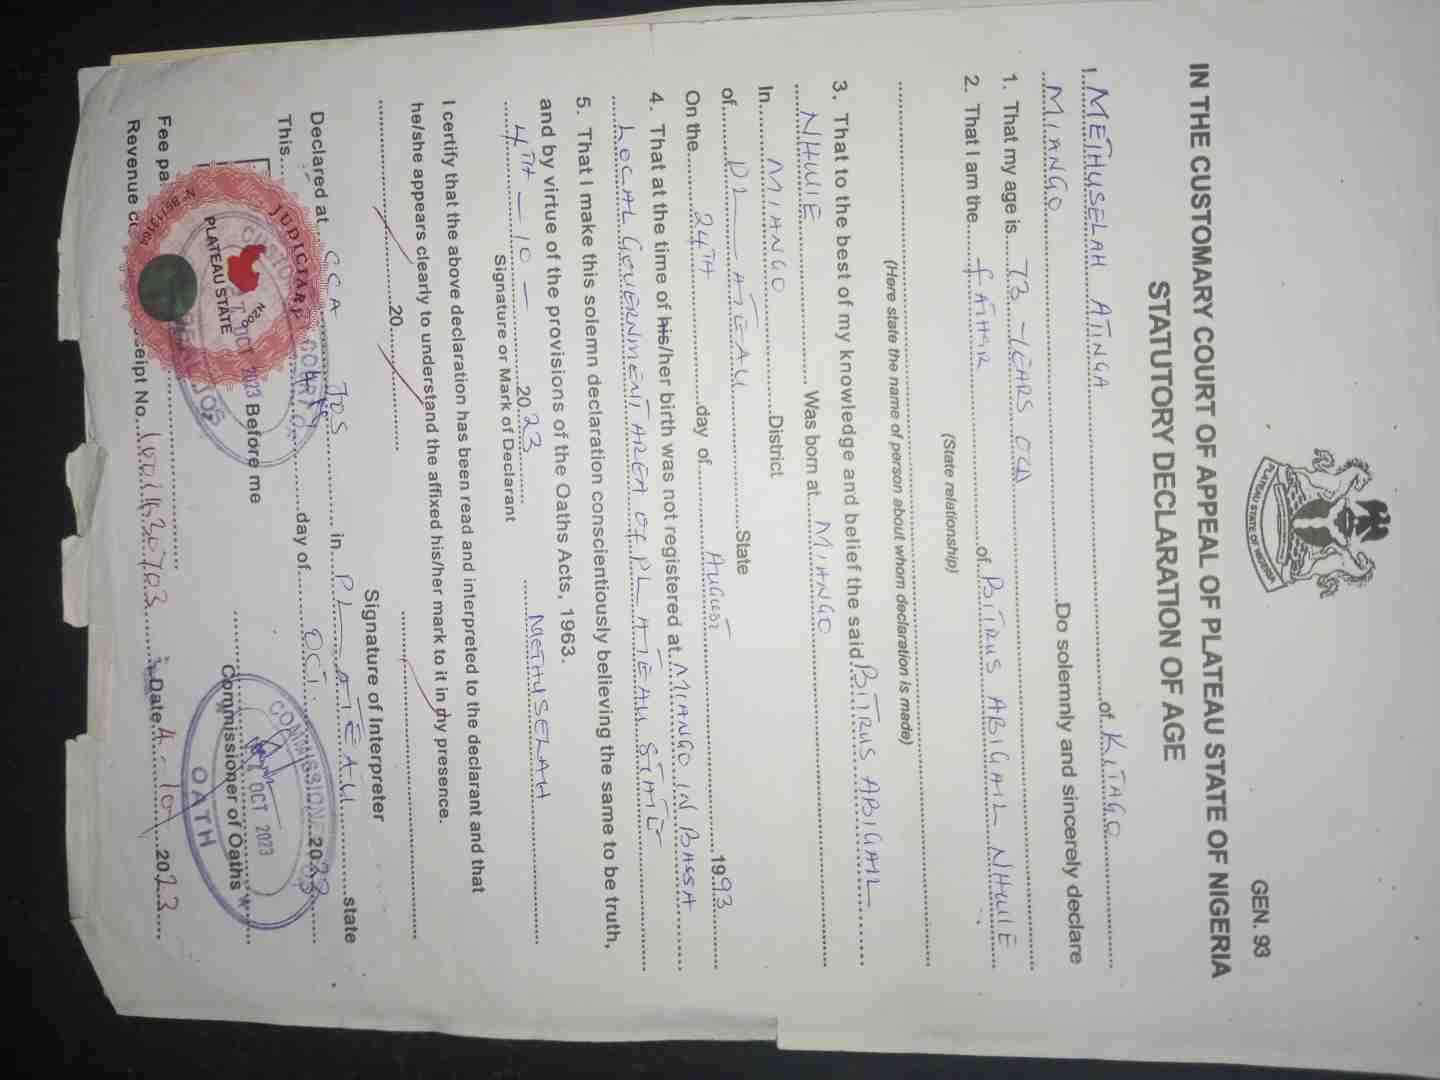 PLATEAU STATE OF NIGERIA
GEN. 93
IN THE CUSTOMARY COURT OF APPEAL OF PLATEAU STATE OF NIGERIA
STATUTORY DECLARATION OF AGE
I...METHUSELAH ATINGA...of...KITAGO
MIANGO...Do solemnly and sincerely declare
1. That my age is...73 YEARS OLD
2. That I am the...fATHER...of...BITRUS ABIGAIL NHWIE
(State relationship)
(Here state the name of person about whom declaration is made)
3. That to the best of my knowledge and belief the said...BITRUS ABIGAIL
NHWIE...Was born at...MIANGO
In...MIANGO...District
of...PLATEAU...State
On the...24TH...day of...AUGUST...1993
4. That at the time of his/her birth was not registered at...MIANGO IN BASSA
LOCAL GOVERNMENT AREA Of PLATEAU STATE
5. That I make this solemn declaration conscientiously believing the same to be truth,
and by virtue of the provisions of the Oaths Acts, 1963.
4TH - 10 - 2023...METHUSELAH
Signature or Mark of Declarant
I certify that the above declaration has been read and interpreted to the declarant and that
he/she appears clearly to understand the affixed his/her mark to it in my presence.
20
Signature of Interpreter
Declared at...CCA JOS...in...PLATEAU...state
This...day of...OCT...2023
OCT 2023 Before me
JUDICIARY
PLATEAU STATE
COMMISSIONER
OCT 2023
OATH
Commissioner of Oaths
Fee pa
Revenue c...eipt No....Date 4-10-2023